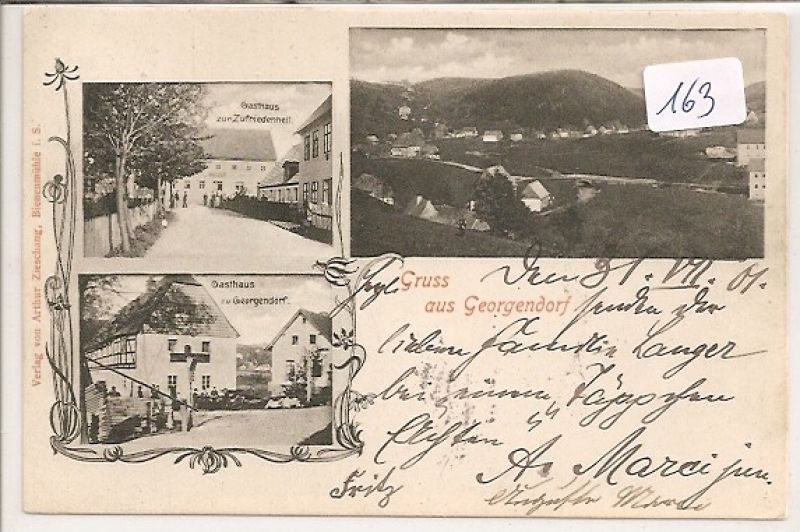 163
Gasthaus
zur Zufriedenheit.
Gasthaus
zu Georgendorf.
Verlag von Arthur Zieschang, Bienenmühle i. S.
Gruss
aus Georgendorf
Den 31. VII. 01.
senden der
lieben Familie Langer
bei einem Täppchen
"Achten"
A. Marci jun.
Fritz
Auguste Marci